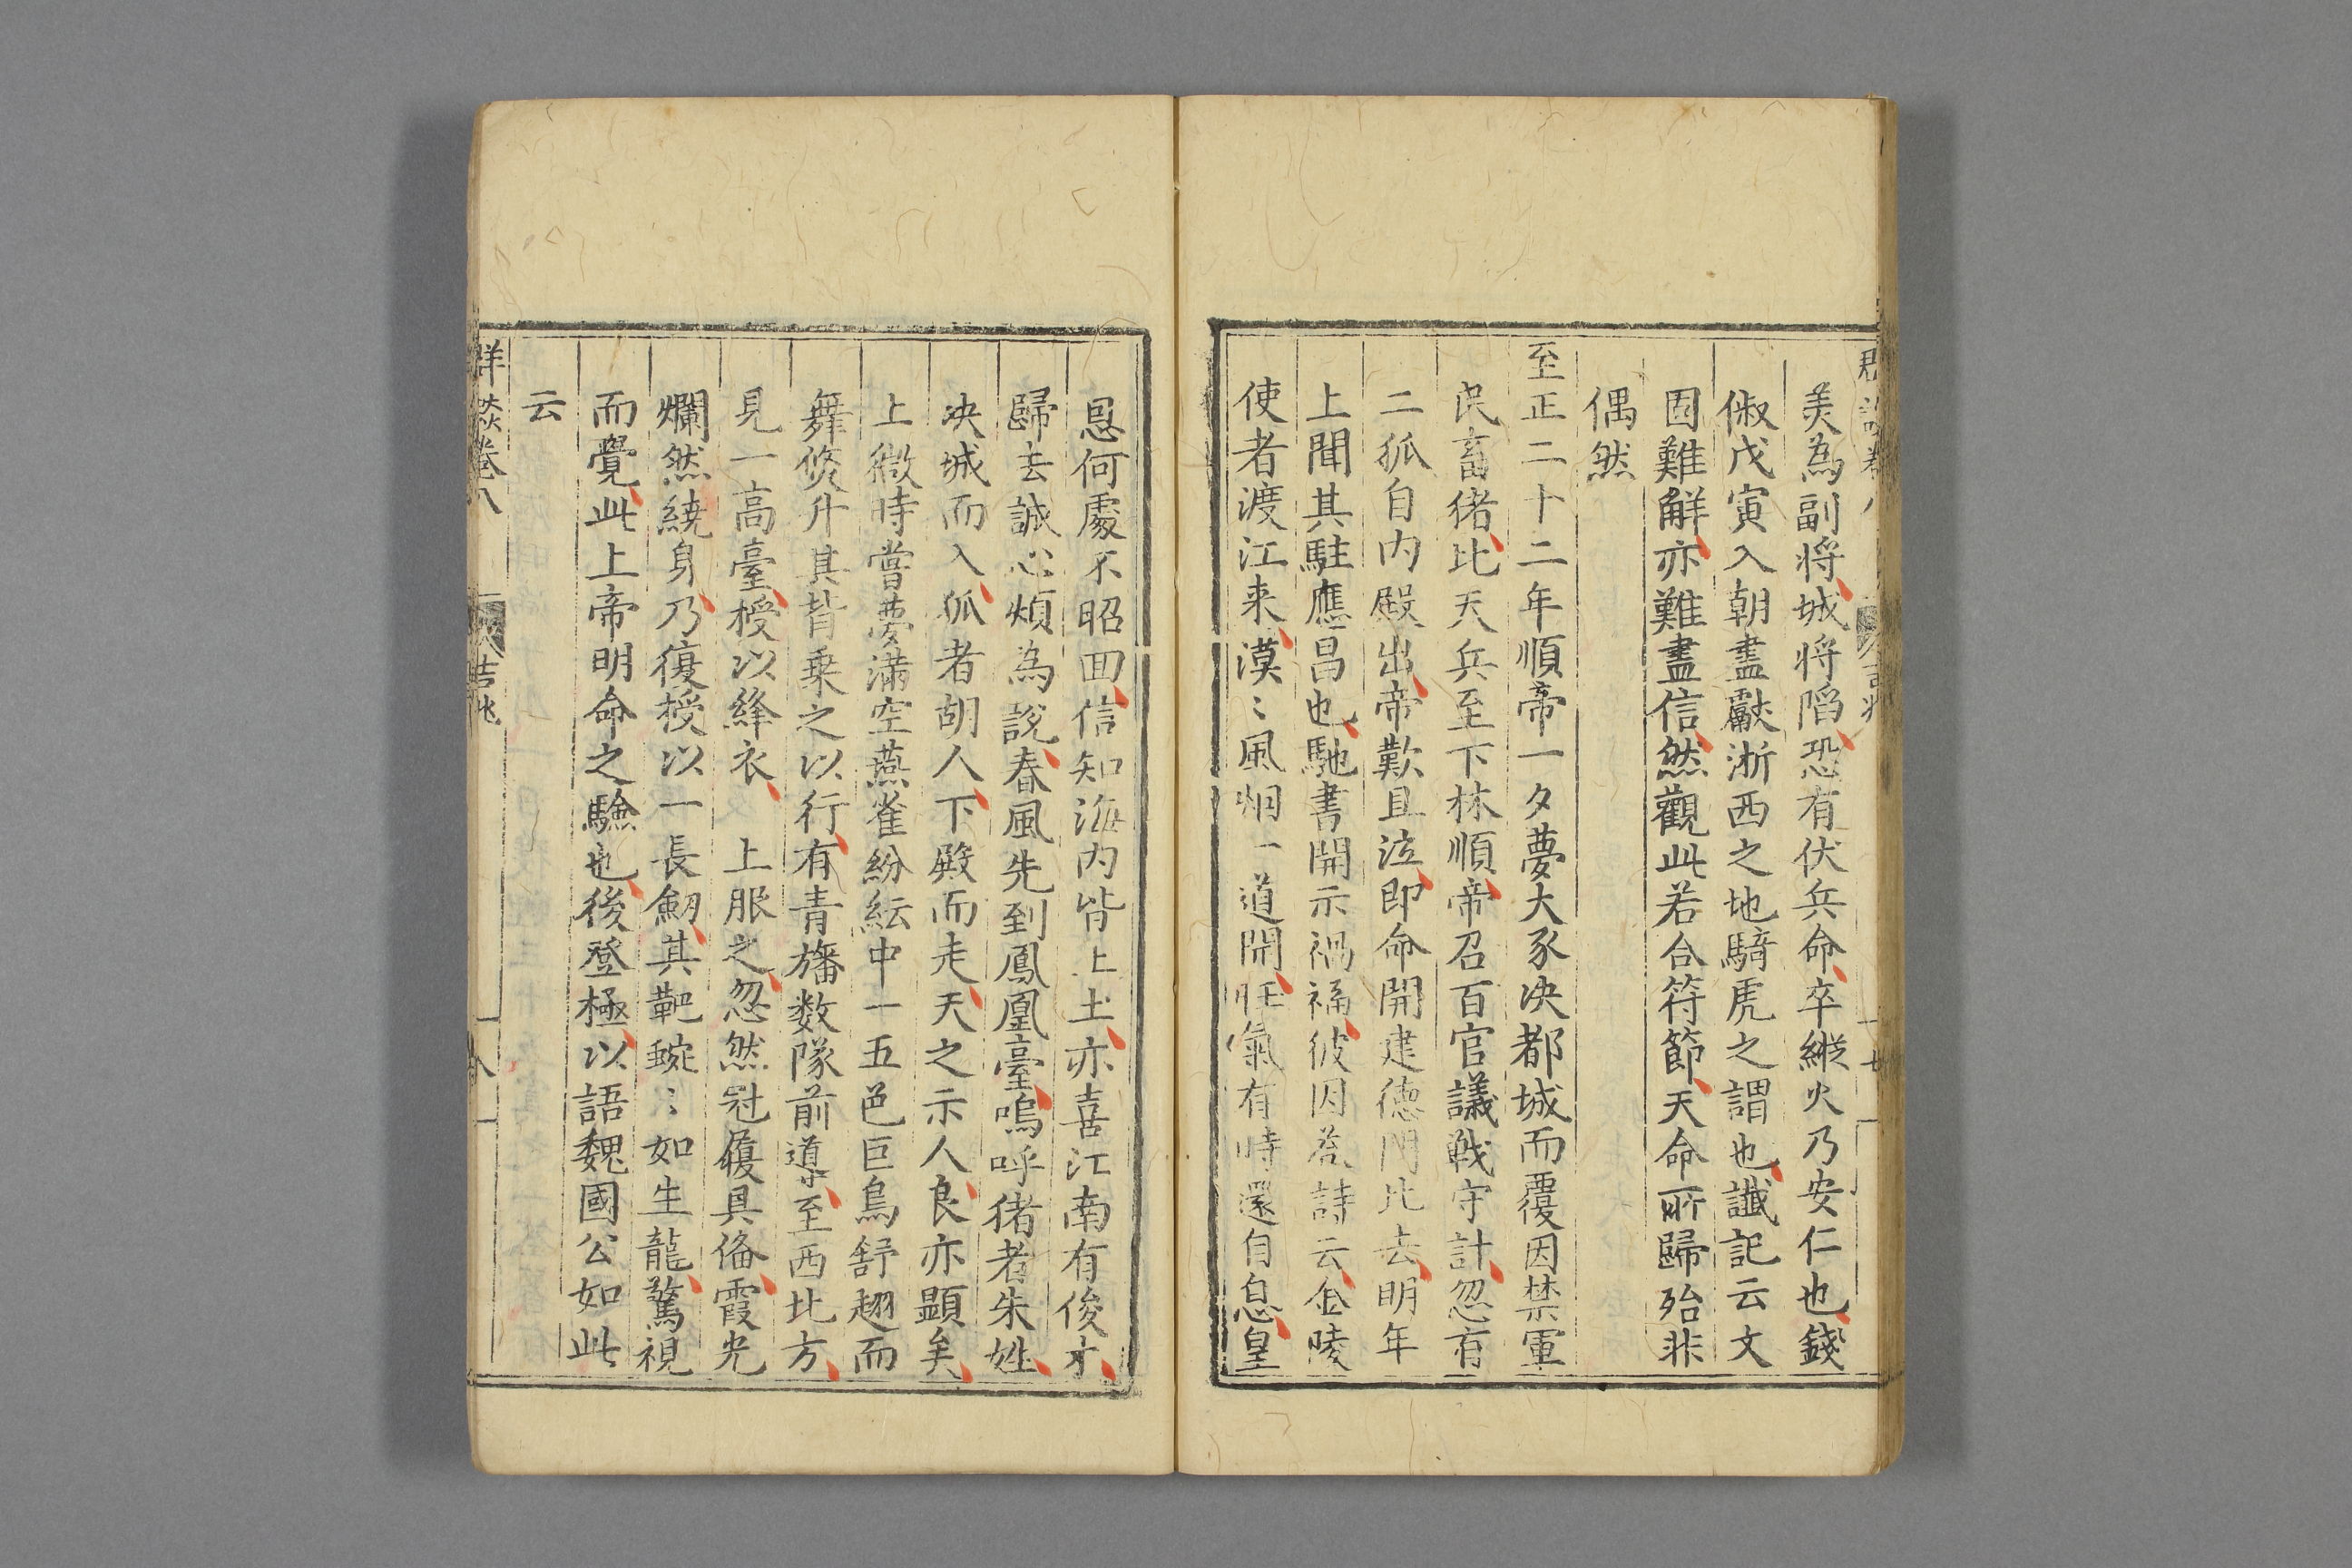 美為副将城将陷恐有伏兵命卒縱火乃安仁也錢
俶戊寅入朝盡獻浙西之地騎虎之謂也讖記云文
固難觧亦難盡信然觀此若合符節天命所歸殆非
偶然
至正二十二年順帝一夕夢大豕决都城而覆因禁軍
民畜猪比天兵至下林順帝召百官議戦守計忽有
二狐自内殿出帝歎且泣即命開建德門北去明年
上聞其駐應昌也馳書開示禍福彼因為詩云金陵
使者渡江来漠〻風烟一道開旺氣有時還自息皇
恩何處不昭回信知海内皆上土亦喜江南有俊才
歸去誠心煩為說春風先到鳳凰臺嗚呼猪者朱姓
决城而入狐者胡人下殿而走天之示人良亦顯矣
上微時嘗夢滿空燕雀紛紜中一五色巨鳥舒翅而
舞倏升其背乗之以行有青旛数隊前導至西北方
見一高臺授以絳衣 上服之忽然冠履具俻霞光
爛然繞身乃復授以一長劒其靶蜿〻如生龍驚視
而覺此上帝明命之驗也後登極以語魏國公如此
云
卷八